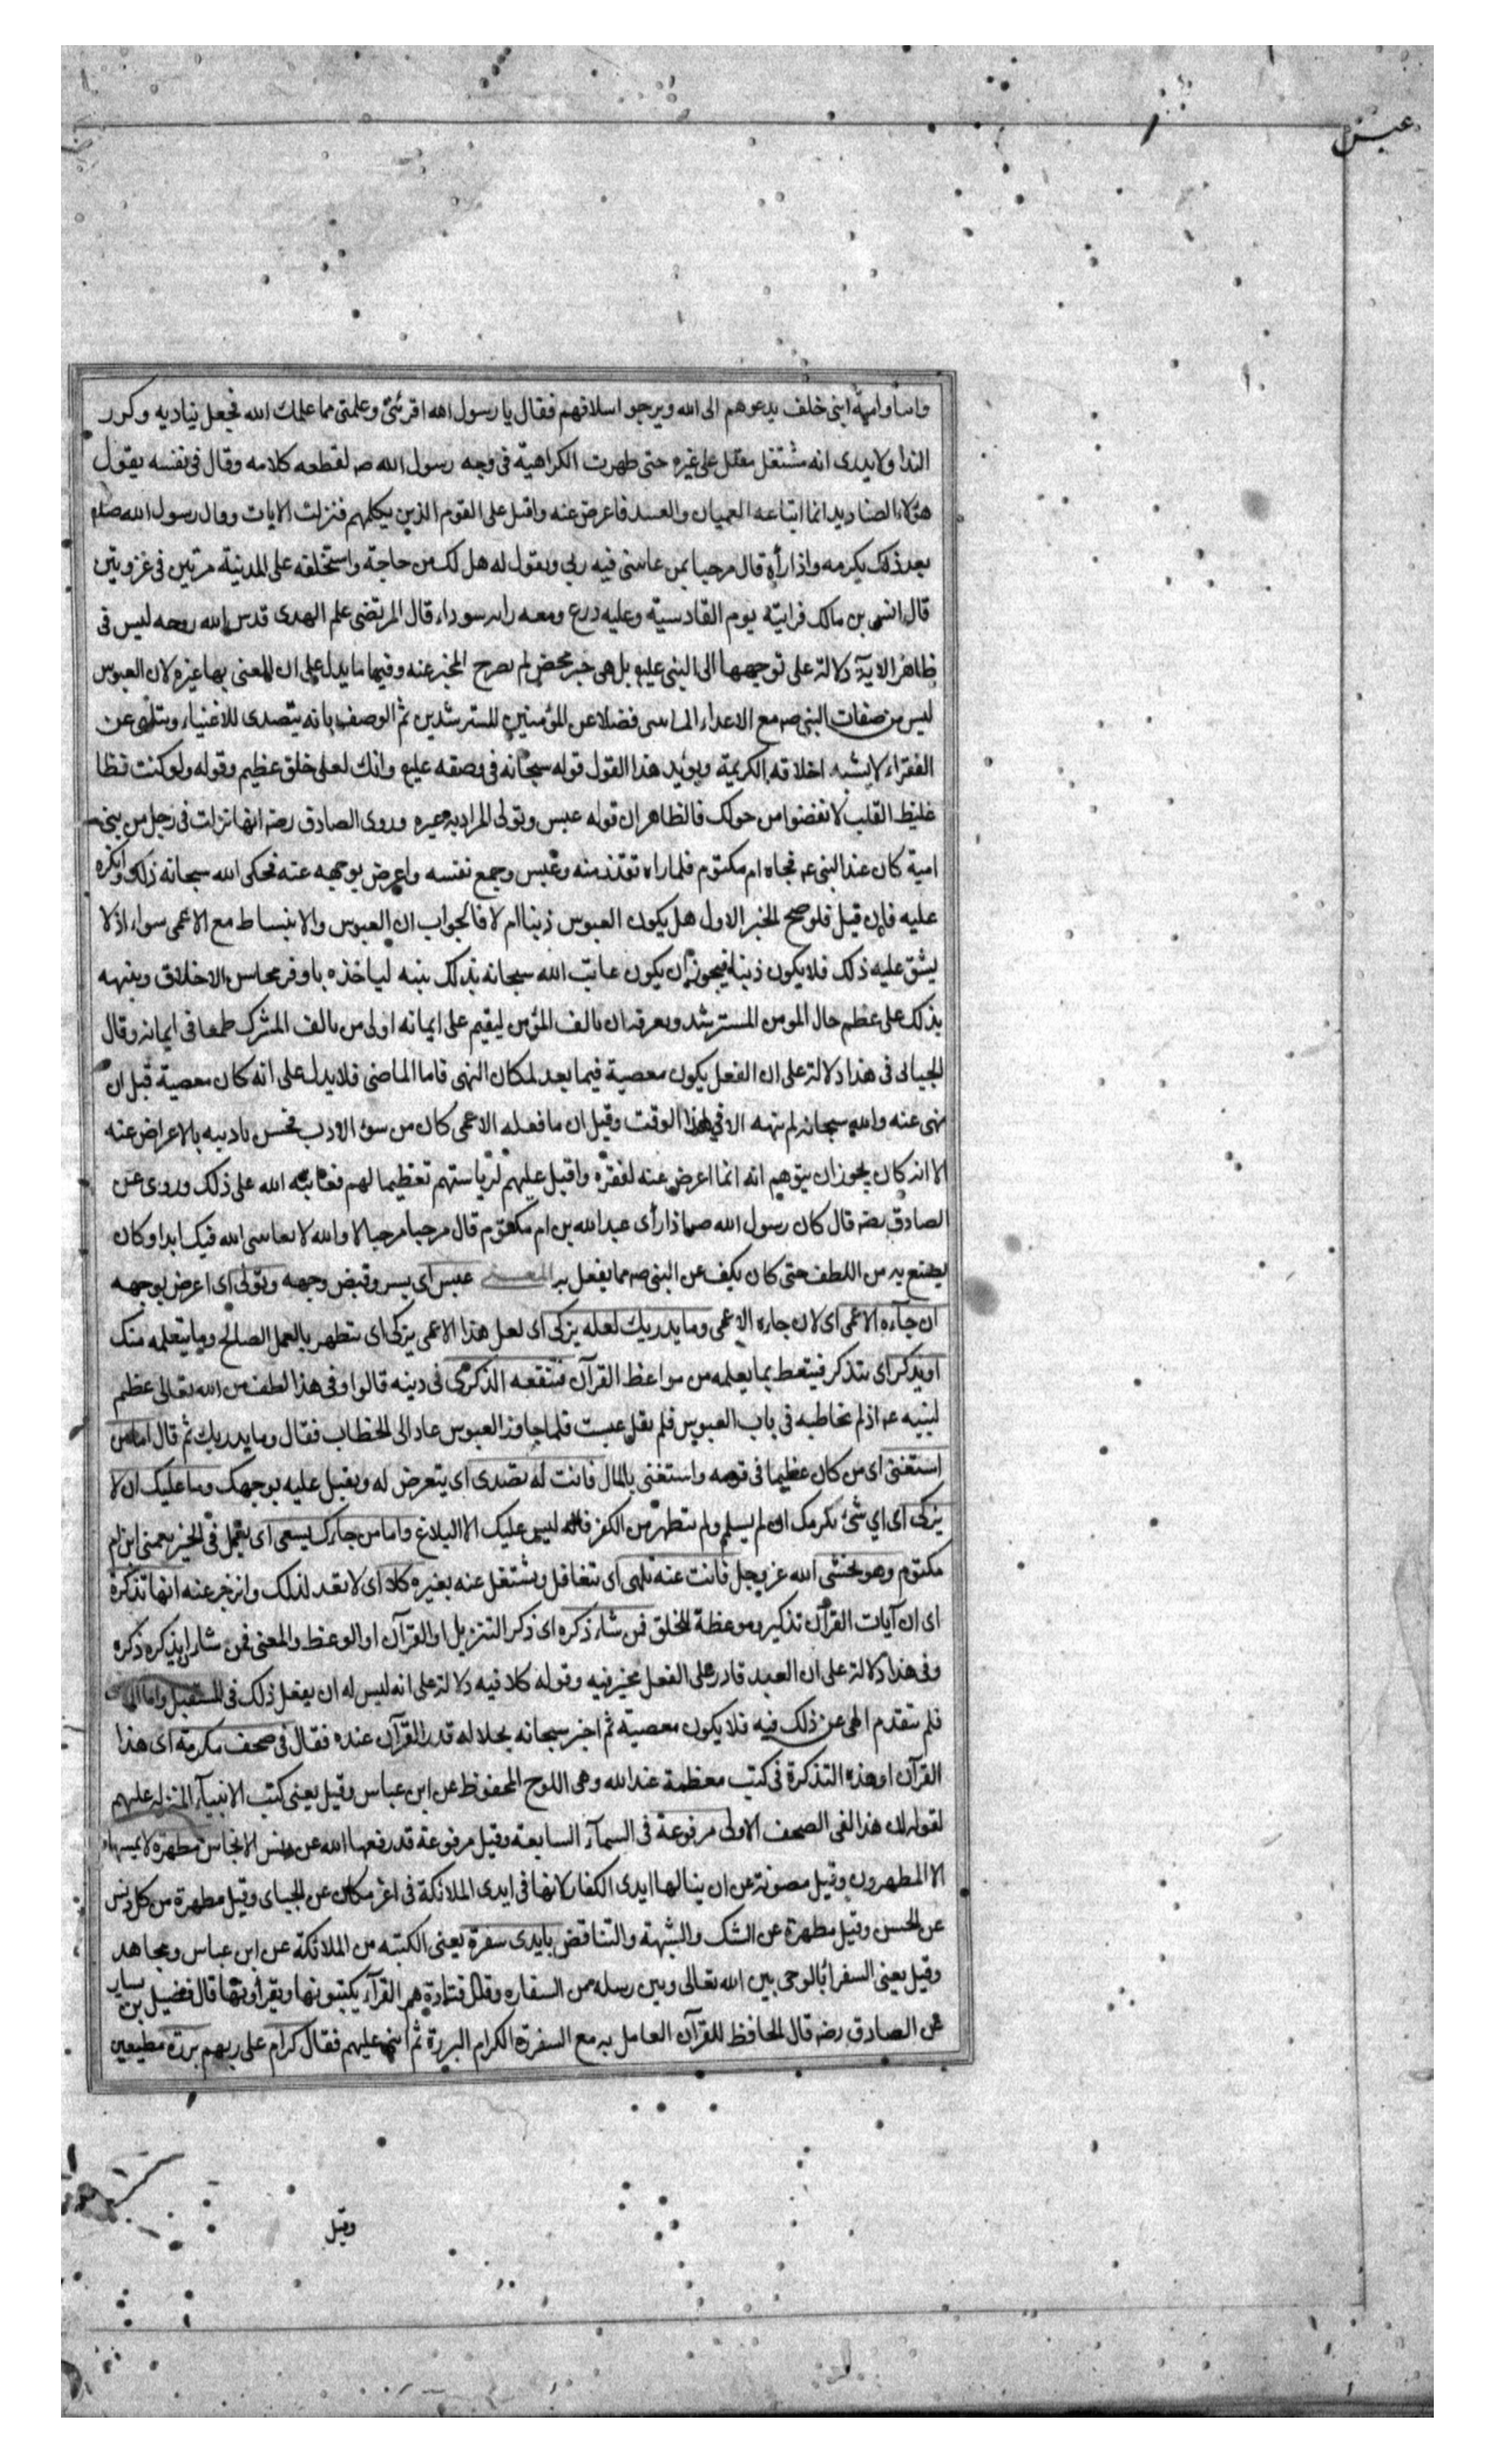 عبس
وابیا وامیة ابنی خلف یدعوهم الی الله ویرجو اسلامهم فقال یا رسول الله اقرئنی وعلمنی مما علمك الله فجعل ینادیه وکرر
الندا ولایدری انه مشتغل مقبل علی غیره حتی ظهرت الکراهیة فی وجه رسول الله صـ لقطعه کلامه وقال فی نفسه یقول
هؤلاء الصنادید انما اتباعه العمیان والعبید فاعرض عنه واقبل علی القوم الذین یکلمهم فنزلت الایات وکان رسول الله صلم
بعد ذلک یکرمه واذا رأه قال مرحبا بمن عاتبنی فیه ربی ویقول له هل لک من حاجة واستخلفه علی المدینة مرتین فی غزوتین
قال انس بن مالک فرایته یوم القادسیة وعلیه درع ومعه رایة سوداء قال المرتضی علم الهدی قدس الله روحه لیس فی
ظاهر الایة دلالة علی توجهها الی النبی علیه بل هی خبر محض لم یصرح المخبر عنه وفیها ما یدل علی ان المعنی بها غیره لان العبوس
لیس من صفات النبی صـ مع الاعداء المباینین فضلا عن المؤمنین المسترشدین ثم الوصف بانه یتصدی للاغنیاء ویتلهی عن
الفقراء لایشبه اخلاقه الکریمة ویؤید هذا القول قوله سبحانه فی وصفه علیه وانك لعلی خلق عظیم وقوله ولو کنت فظا
غلیظ القلب لانفضوا من حولک فالظاهر ان قوله عبس وتولی المراد به غیره وروی الصادق رضـ انها نزلت فی رجل من بنی
امیة کان عند النبی عـ فجاه ام مکتوم فلما راه تقذر منه وعبس وجمع نفسه واعرض بوجهه عنه فحکی الله سبحانه ذلک وانکره
علیه فان قیل فلو صح الخبر الاول هل یکون العبوس ذنبا ام لا فالجواب ان العبوس والانبساط مع الاعمی سواء اذ لا
یشق علیه ذلک فلا یکون ذنبا فیجوز ان یکون عاتب الله سبحانه بذلک نبیه لیاخذه باوفر محاسن الاخلاق وینبهه
بذلک علی عظم حال المومن المسترشد ویعرفه ان تالف المؤمن لیقیم علی ایمانه اولی من تالف المشرک طمعا فی ایمانه وقال
الجبائی فی هذا دلالة علی ان الفعل یکون معصیة فیما بعد لمکان النهی فاما الماضی فلا یدل علی انه کان معصیة قبل ان
نهی عنه والله سبحانه لم ینهه الا فی هذا الوقت وقیل ان ما فعله الاعمی کان من سوء الادب فحسن تادیبه بالاعراض عنه
الا انه کان یجوز ان یتوهم انه انما اعرض عنه لفقره واقبل علیهم لریاستهم تعظیما لهم فعاتبه الله علی ذلک وروی عن
الصادق رضـ قال کان رسول الله صـ اذا رأی عبد الله بن ام مکتوم قال مرحبا مرحبا لا والله لا یعاتبنی الله فیک ابدا وکان
یصنع به من اللطف حتی کان یکف عن النبی صـ مما یفعل به المعنی عبس ای بسر وقبض وجهه وتولی ای اعرض بوجهه
ان جآءه الاعمی ای لان جاره الاعمی وما یدریك لعله یزکی ای لعل هذا الاعمی یزکی ای یتطهر بالعمل الصالح وما یتعلمه منک
او یذکر ای یتذکر فیتعظ بما یعلمه من مواعظ القرآن فتنفعه الذکری فی دینه قالوا وفی هذا لطف من الله تعالی عظیم
لنبیه عـ اذ لم یخاطبه فی باب العبوس فلم یقل عبست فلما جاوز العبوس عاد الی الخطاب فقال وما یدریك ثم قال اما من
استغنی ای من کان عظیما فی قومه واستغنی بالمال فانت له تصدی ای یتعرض له ویقبل علیه بوجهک وما علیک ان لا
یزکی ای ای شئ یکرمک ان لم یسلم ولم یتطهر من الکفر فانه لیس علیک الا البلاغ واما من جاءک یسعی ای یعمل فی الخیر یعنی ابن ام
مکتوم وهو یخشی الله عز وجل فانت عنه تلهی ای تتغافل ویشتغل عنه بغیره کلا ای لا تعد لذلک وانزجر عنه انها تذکرة
ای ان آیات القرآن تذکیر وموعظة للخلق فمن شاء ذکره ای ذکر التنزیل او القرآن او الوعظ والمعنی فمن شاء ان یذکره ذکره
وفی هذا دلالة علی ان العبد قادر علی الفعل مخیر فیه وقوله کلا فیه دلالة علی انه لیس له ان یفعل ذلک فی المستقبل واما الماضی
فلم یتقدم النهی عن ذلک فیه فلا یکون معصیة ثم اخبر سبحانه بجلاله قدر القرآن عنده فقال فی صحف مکرمة ای هذا
القرآن او هذه التذکرة فی کتب معظمة عند الله وهی اللوح المحفوظ عن ابن عباس وقیل یعنی کتب الانبیآء المنزلة علیهم
لقوله ان هذا لفی الصحف الاولی مرفوعة فی السمآء السابعة وقیل مرفوعة قد رفعها الله عن دنس الانجاس مطهرة لا یمسها
الا المطهرون وقیل مصونة عن ان ینالها ایدی الکفار لانها فی ایدی الملائکة فی اعز مکان عن الجبای وقیل مطهرة من کل دنس
عن الحسن وقیل مطهرة عن الشک والشبهة والتناقض بایدی سفرة یعنی الکتبه من الملائکة عن ابن عباس ومجاهد
وقیل یعنی السفرآء بالوحی بین الله تعالی وبین رسله من السفاره وقال قتادة هم القرآء یکتبونها ویقرأونها قال فضیل بن یسار
عن الصادق رضـ قال الحافظ للقرآن العامل به مع السفرة الکرام البررة ثم اثنی علیهم فقال کرام علی ربهم بررة مطیعین
وقیل